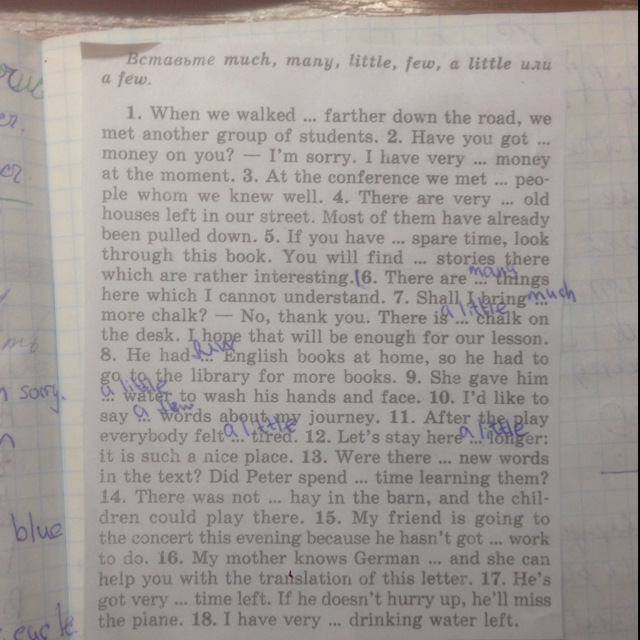 Вставьте much, many, little, few, a little или
a few.
1. When we walked ... farther down the road, we
met another group of students. 2. Have you got ...
money on you? — I'm sorry. I have very ... money
at the moment. 3. At the conference we met ... peo-
ple whom we knew well. 4. There are very ... old
houses left in our street. Most of them have already
been pulled down. 5. If you have ... spare time, look
through this book. You will find ... stories there
many
which are rather interesting. (6. There are ... things
here which I cannot understand. 7. Shall I bring ...
much
a little
more chalk? — No, thank you. There is ... chalk on
the desk. I hope that will be enough for our lesson.
few
8. He had ... English books at home, so he had to
go to the library for more books. 9. She gave him
a little
... water to wash his hands and face. 10. I'd like to
a few
say ... words about my journey. 11. After the play
a little
a little
everybody felt ... tired. 12. Let's stay here ... longer:
it is such a nice place. 13. Were there ... new words
in the text? Did Peter spend ... time learning them?
14. There was not ... hay in the barn, and the chil-
dren could play there. 15. My friend is going to
the concert this evening because he hasn't got ... work
to do. 16. My mother knows German ... and she can
help you with the translation of this letter. 17. He's
got very ... time left. If he doesn't hurry up, he'll miss
the plane. 18. I have very ... drinking water left.
sorry.
blue